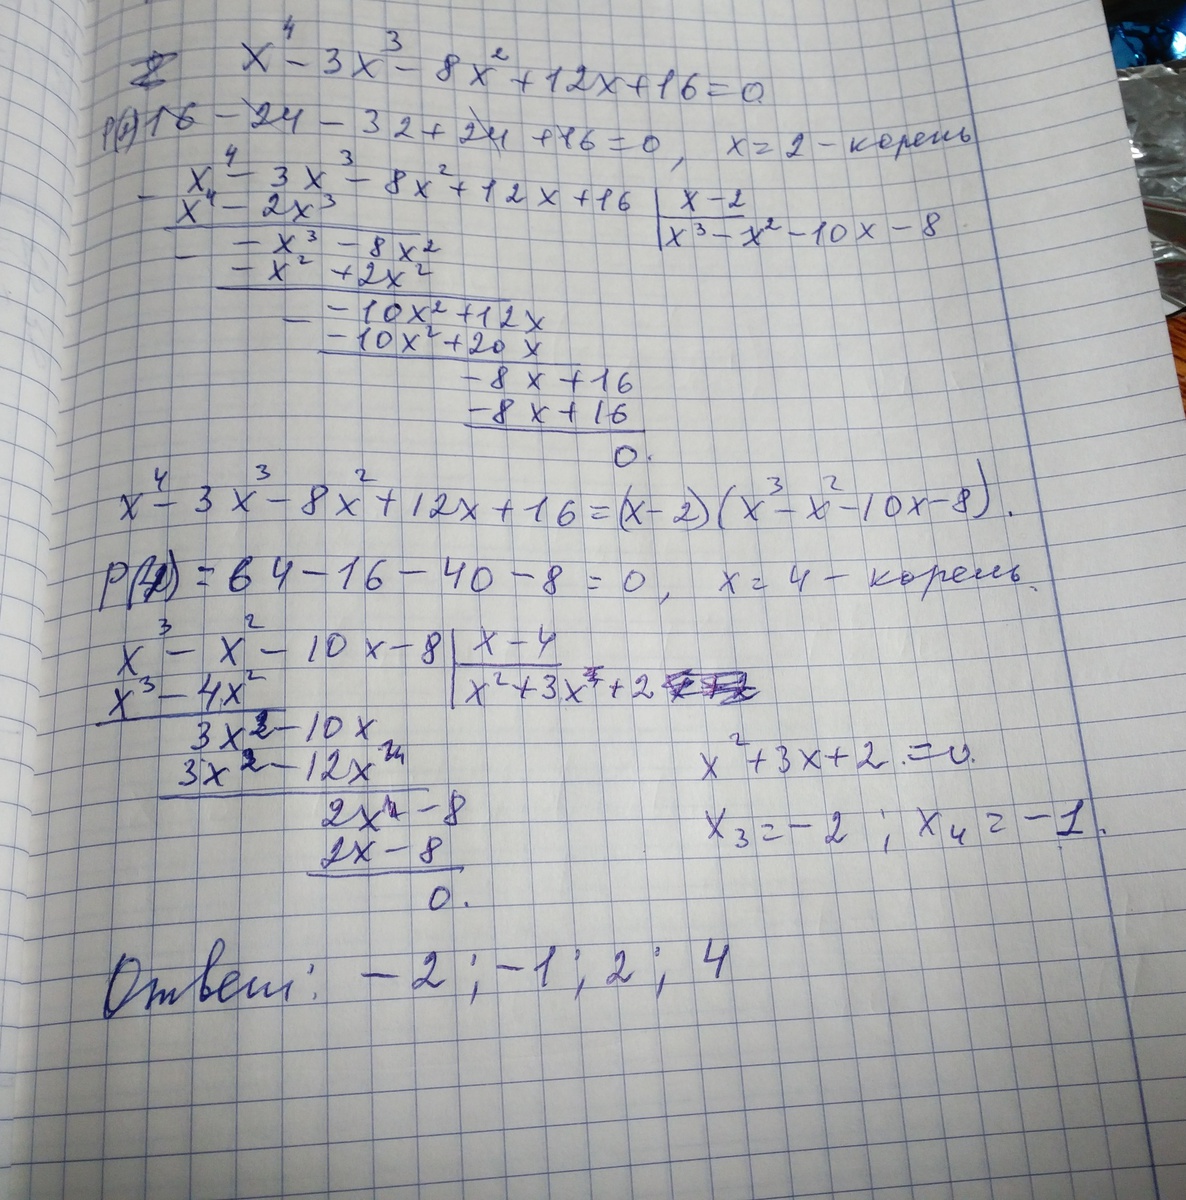 x⁴ - 3x³ - 8x² + 12x + 16 = 0
P(2) 16 - 24 - 32 + 24 + 16 = 0, x = 2 - корень
x⁴ - 3x³ - 8x² + 12x + 16 | x - 2
x⁴ - 2x³ | x³ - x² - 10x - 8
- x³ - 8x²
- x² + 2x²
- 10x² + 12x
- 10x² + 20x
- 8x + 16
- 8x + 16
0.
x⁴ - 3x³ - 8x² + 12x + 16 = (x - 2)(x³ - x² - 10x - 8).
P(4) = 64 - 16 - 40 - 8 = 0, x = 4 - корень.
x³ - x² - 10x - 8 | x - 4
x³ - 4x² | x² + 3x + 2
3x² - 10x
3x² - 12x
2x - 8
2x - 8
0.
x² + 3x + 2 = 0.
x₃ = -2; x₄ = -1.
Ответ: -2; -1; 2; 4